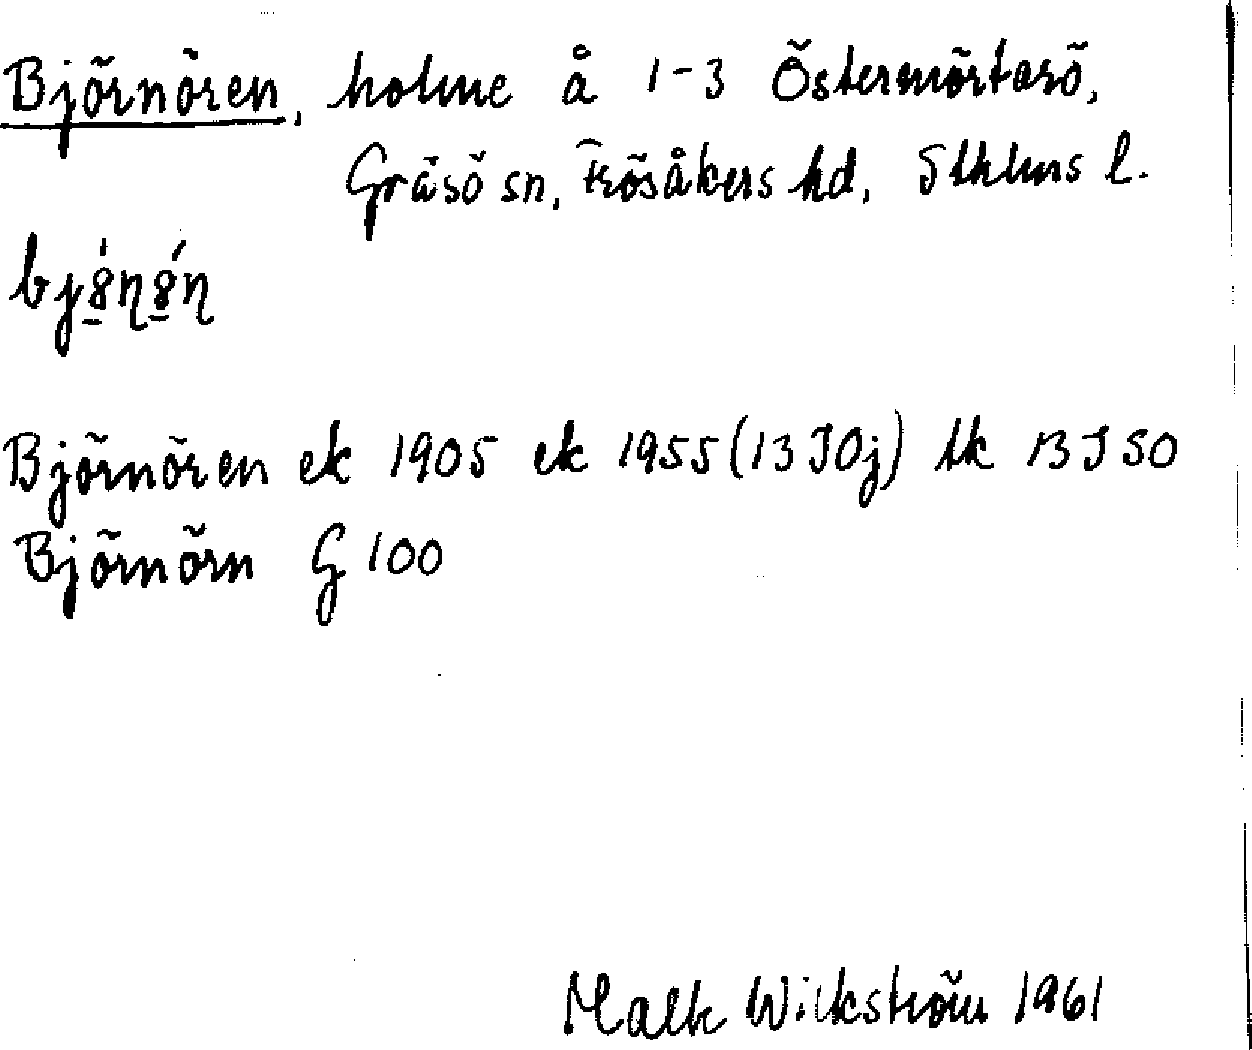 Björnören, holme å 1-3 Östermörtarö,
Gräsö sn, Frösåkers hd, Sthlms l.
Björnören ek 1905 ek 1955 (13 I 0j) tk 13 I SO
Björnörn G 100
Wikström 1961